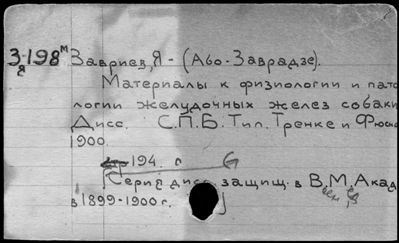 З-198м Завриев, Я - (Або-Заврадзе).
я
Материалы к физиологии и пато
логии желудочных желез собаки
Дисс. С.П.Б. Тип. Тренке и Фюсно
1900.
194. с
(Серия дисс. защищ. в В.М. Акад
в 1899-1900 г.